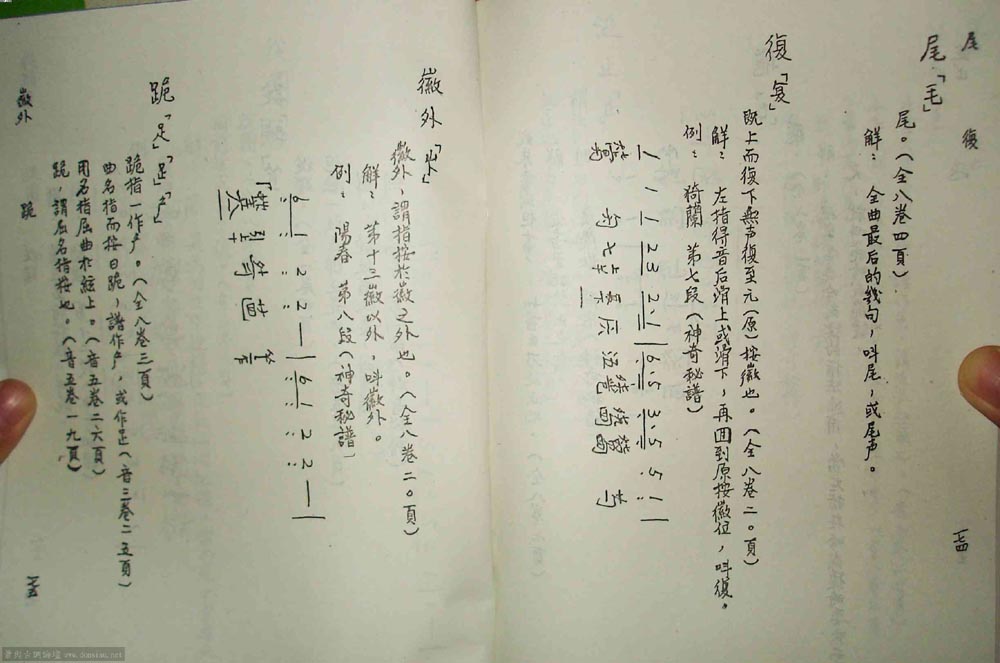 尾
復
尾「毛」
尾。(全八卷四頁)
解：全曲最后的幾句，叫尾，或尾声。
復「复」
既上而復下無声復至元(原)按徽也。(全八卷二〇頁)
解：左指得音后滑上或滑下，再囬到原按徽位，叫復。
例：猗蘭 第七段(神奇秘譜)
1 1 1 23 2·1 6·5 3·5 5 1
一七四
徽外「」
徽外，謂指按於徽之外也。(全八卷二〇頁)
解：第十三徽以外，叫徽外。
例：陽春 第八段(神奇秘譜)
6 1 2 2 — 6 1 2 2 —
跪「」「足」「」
跪指一作。(全八卷三頁)
曲名指而按曰跪，譜作，或作足(音三卷二五頁)
用名指屈曲於絃上。(音五卷二六頁)
跪，謂屈名指按也。(音五卷一九頁)
徽外
跪
一七五
www.donsiau.net